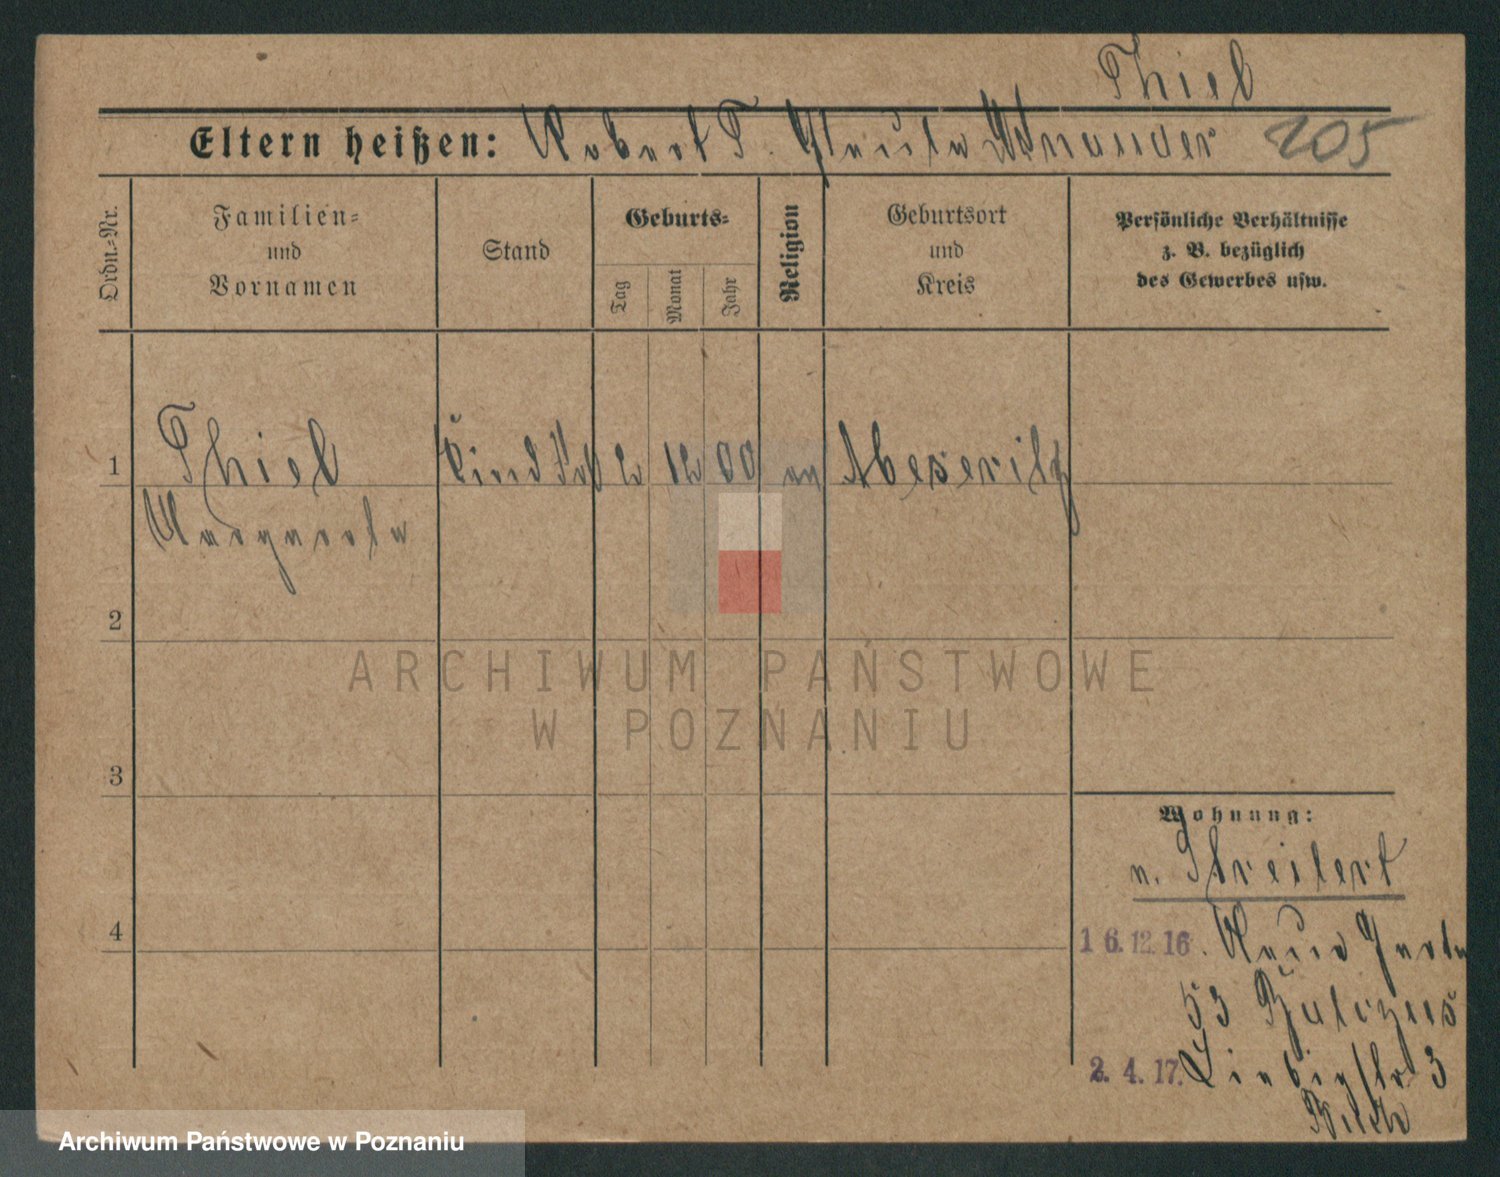 Thiel
Eltern heißen: Robert T. 205
Ordn.-Nr.
Familien-
und
Vornamen
Stand
Geburts-
Tag
Monat
Jahr
Religion
Geburtsort
und
Kreis
Persönliche Verhältnisse
z. B. bezüglich
des Gewerbes usw.
1
Thiel 2 12 00 Meseritz
Margarete
2
3
4
Wohnung:
n. Streitert
16.12.16.
53
2.4.17. Liebigstr 3
ARCHIWUM PAŃSTWOWE
W POZNANIU
Archiwum Państwowe w Poznaniu